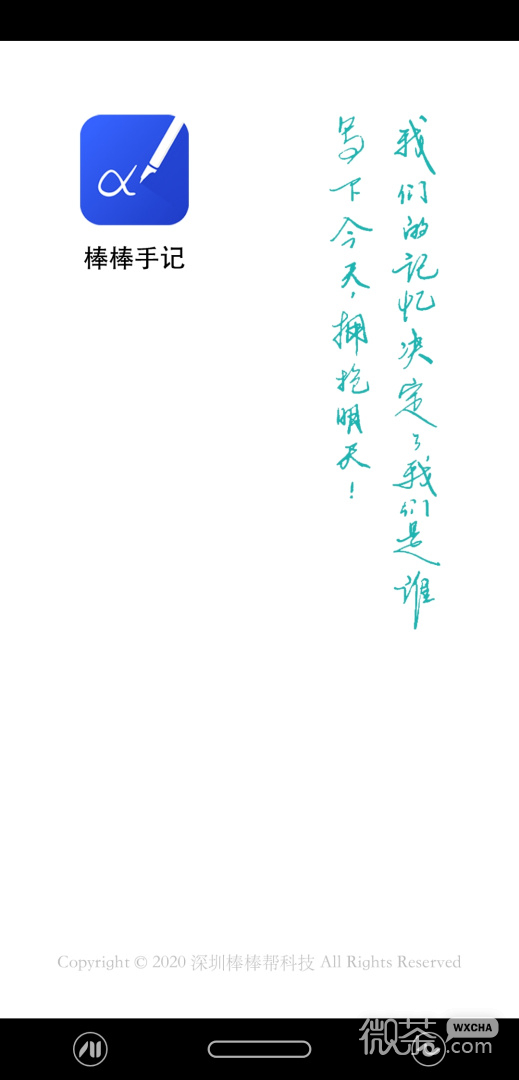 棒棒手记
我们的记忆决定了我们是谁
写下今天，拥抱明天！
Copyright © 2020 深圳棒棒帮科技 All Rights Reserved
微茶
WXCHA
.com